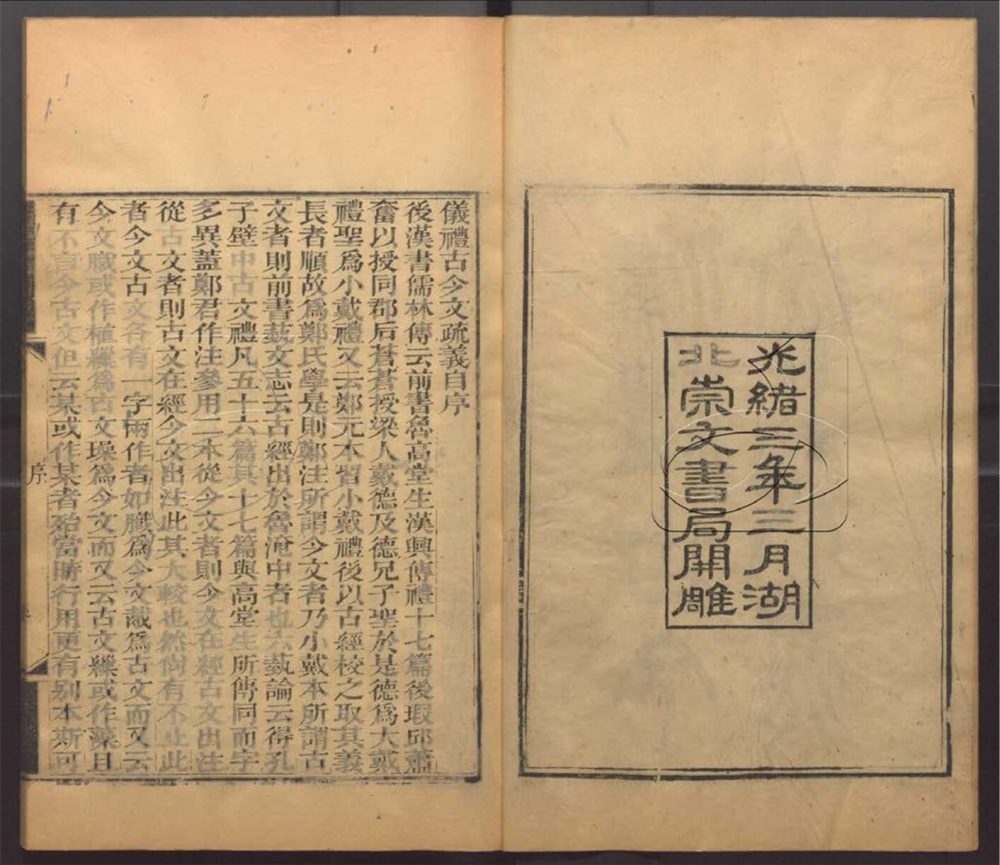 光緒三年三月湖
北崇文書局開雕
儀禮古今文疏義自序
後漢書儒林傳云前書魯高堂生漢興傳禮十七篇後瑕邱蕭
奮以授同郡后蒼蒼授梁人戴德及德兄子聖於是德爲大戴
禮聖爲小戴禮又云鄭元本習小戴禮後以古經校之取其義
長者順故爲鄭氏學是則鄭注所謂今文者乃小戴本所謂古
文者則前書藝文志云古經出於魯淹中者也六藝論云得孔
子壁中古文禮凡五十六篇其十七篇與高堂生所傳同而字
多異蓋鄭君作注參用二本從今文者則今文在經古文出注
從古文者則古文在經今文出注此其大較也然尙有不止此
者今文古文各有一字兩作者如膱爲今文胾爲古文而又云
今文膱或作植繅爲古文璪爲今文而又云古文繅或作藻且
有不言今古文但云某或作某者殆當時行用更有别本斯可
序